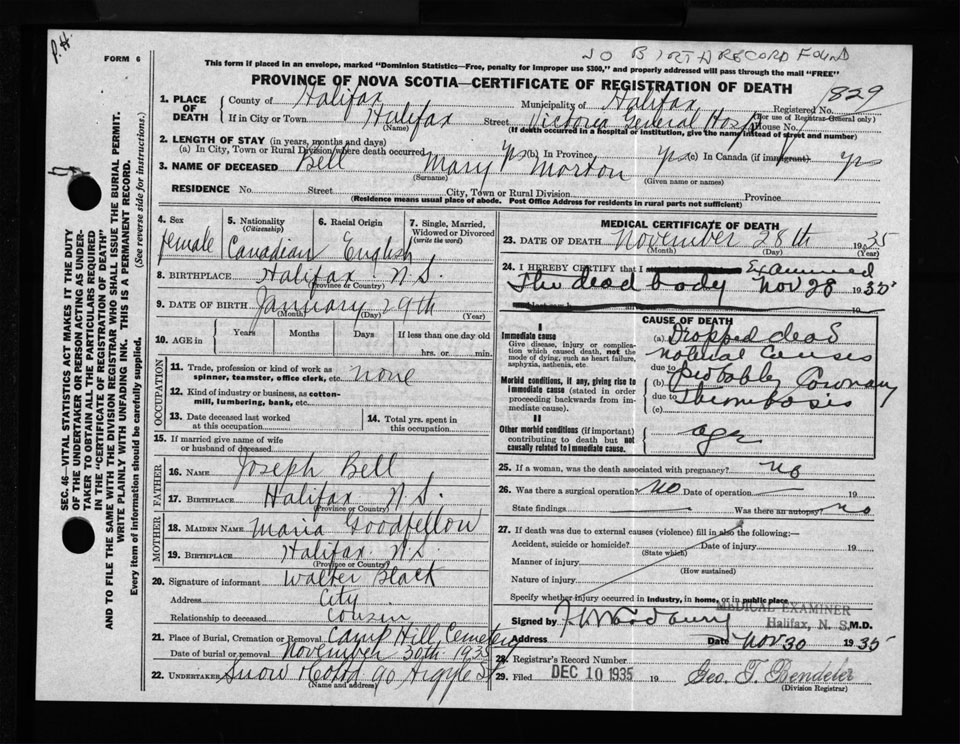 P.H.
NO BIRTH RECORD FOUND
FORM 6
This form if placed in an envelope, marked "Dominion Statistics—Free, penalty for improper use $300," and properly addressed will pass through the mail "FREE"
PROVINCE OF NOVA SCOTIA—CERTIFICATE OF REGISTRATION OF DEATH
829
1. PLACE OF DEATH
County of Halifax Municipality of Halifax Registered No.
(For use of Registrar-General only)
If in City or Town Halifax Street Victoria General Hosp House No.
(Name) (If death occurred in a hospital or institution, give the name instead of street and number)
2. LENGTH OF STAY (in years, months and days)
(a) In City, Town or Rural Division where death occurred (b) In Province (c) In Canada (if immigrant)
3. NAME OF DECEASED Bell Mary Morton
(Surname) (Given name or names)
RESIDENCE No. Street City, Town or Rural Division Province
(Residence means usual place of abode. Post Office Address for residents in rural parts not sufficient)
SEC. 46—VITAL STATISTICS ACT MAKES IT THE DUTY
OF THE UNDERTAKER OR PERSON ACTING AS UNDER-
TAKER TO OBTAIN ALL THE PARTICULARS REQUIRED
IN THE "CERTIFICATE OF REGISTRATION OF DEATH"
AND TO FILE THE SAME WITH THE DIVISION REGISTRAR WHO SHALL ISSUE THE BURIAL PERMIT.
WRITE PLAINLY WITH UNFADING INK. THIS IS A PERMANENT RECORD.
Every item of information should be carefully supplied. (See reverse side for instructions.)
4. Sex 5. Nationality (Citizenship) 6. Racial Origin 7. Single, Married, Widowed or Divorced (write the word)
female Canadian English
8. BIRTHPLACE Halifax N.S.
(Province or Country)
9. DATE OF BIRTH January 29th
(Month) (Day) (Year)
10. AGE in Years Months Days If less than one day old
hrs. or min.
OCCUPATION
11. Trade, profession or kind of work as spinner, teamster, office clerk, etc. none
12. Kind of industry or business, as cotton-mill, lumbering, bank, etc.
13. Date deceased last worked at this occupation 14. Total yrs. spent in this occupation
15. If married give name of wife or husband of deceased
FATHER
16. Name Joseph Bell
17. Birthplace Halifax N.S.
(Province or Country)
MOTHER
18. Maiden Name Maria Goodfellow
19. Birthplace Halifax N.S.
(Province or Country)
20. Signature of informant Walter Black
Address City
Relationship to deceased Cousin
21. Place of Burial, Cremation or Removal Camp Hill Cemetery
Date of burial or removal November 30th 1935
22. UNDERTAKER Snow & Co Ltd 90 Argyle St
(Name and address)
MEDICAL CERTIFICATE OF DEATH
23. DATE OF DEATH November 28th 1935
(Month) (Day) (Year)
24. I HEREBY CERTIFY that I Examined
The dead body Nov 28 1935
19
I
Immediate cause
Give disease, injury or complication which caused death, not the mode of dying, such as heart failure, asphyxia, asthenia, etc.
Morbid conditions, if any, giving rise to immediate cause (stated in order proceeding backwards from immediate cause).
II
Other morbid conditions (if important) contributing to death but not causally related to immediate cause.
CAUSE OF DEATH
(a) Dropped dead
natural Causes
due to
(b) Probably Coronary
due to Thrombosis
(c)
age
25. If a woman, was the death associated with pregnancy? no
26. Was there a surgical operation? no Date of operation — 19
State findings — Was there an autopsy? no
27. If death was due to external causes (violence) fill in also the following:—
Accident, suicide or homicide? Date of injury 19
(State which)
Manner of injury
(How sustained)
Nature of injury
Specify whether injury occurred in industry, in home, or in public place
MEDICAL EXAMINER
Halifax, N. S.
Signed by M.D.
Address Date Nov 30 1935
28. Registrar's Record Number
29. Filed DEC 10 1935 19 Geo. T. Bendeler
(Division Registrar)